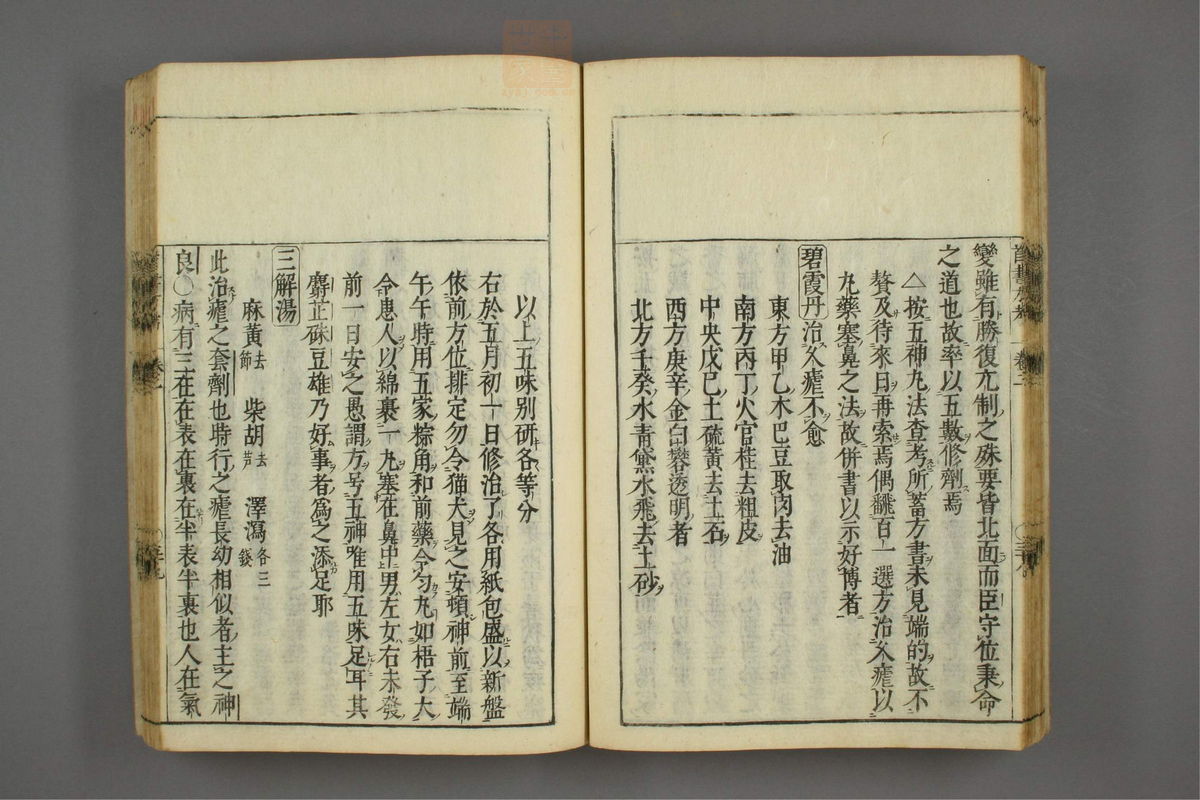 變雖有勝復亢制之殊要皆北面而臣守位秉命
之道也故率以五數修劑焉
△按五神丸法查考所蓄方書未見端的故不
贅及待來日再索焉偶飜百一選方治久瘧以
丸藥塞鼻之法故併書以示好博者
碧霞丹治久瘧不愈
東方甲乙木巴豆取肉去油
南方丙丁火官桂去粗皮
中央戊巳土硫黃去土石
西方庚辛金白礬透明者
北方壬癸水青黛水飛去土砂
以上五味別研各等分
右於五月初一日修治了各用紙包盛以新盤
依前方位排定勿令猫犬見之安頓神前至端
午午時用五家粽角和前藥令匀丸如梧子大
令患人以綿裹一丸塞在鼻中男左女右未發
前一日安之愚謂方号五神唯用五味足耳其
麝芷硃豆雄乃好事者為之添足耶
三解湯
麻黃去節 柴胡去芦 澤瀉各三錢
此治瘧之套劑也時行之瘧長幼相似者主之神
良○病有三在在表在裏在半表半裏也人在氣